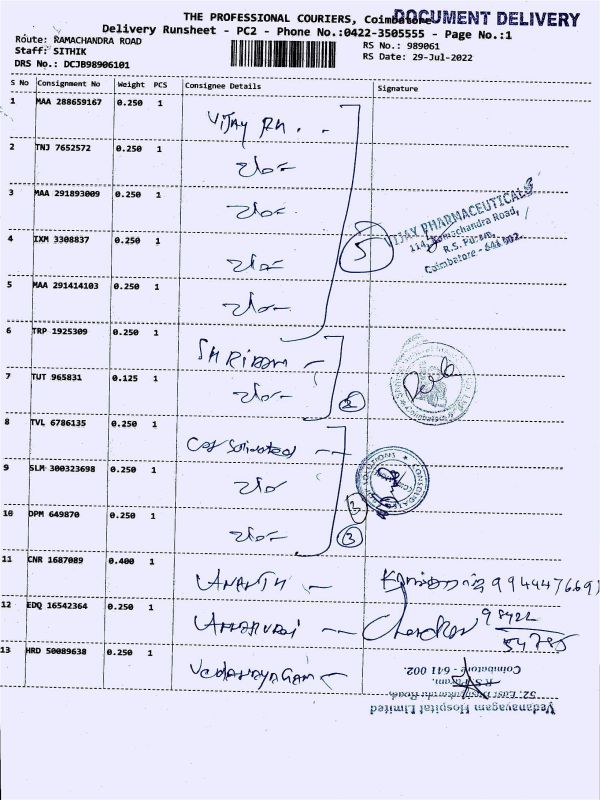 THE PROFESSIONAL COURIERS, Coimbatore
DOCUMENT DELIVERY
Delivery Runsheet - PC2 - Phone No.:0422-3505555 - Page No.:1
Route: RAMACHANDRA ROAD
Staff: SITHIK
DRS No.: DCJB98906101
RS No.: 989061
RS Date: 29-Jul-2022
S No Consignment No Weight PCS Consignee Details Signature
1 MAA 288659167 0.250 1
VIJAY PH.
2 TNJ 7652572 0.250 1
3 MAA 291893009 0.250 1
4 IXM 3308837 0.250 1
5 MAA 291414103 0.250 1
5
VIJAY PHARMACEUTICALS
114, Ramachandra Road,
R.S. Puram,
Coimbatore - 641 002.
6 TRP 1925309 0.250 1
SHRIRAM
7 TUT 965831 0.125 1
2
8 TVL 6786135 0.250 1
Consolidated
9 SLM 300323698 0.250 1
CONSOLIDATED SOLUTIONS
10 DPM 649870 0.250 1
3
3
11 CNR 1687089 0.400 1
ANANTH
12 EDQ 16542364 0.250 1
ANNAPURNI
Chandran 98422
54785
13 HRD 50089638 0.250 1
VEDANAYAGAM
Vedanayagam Hospital Limited
52, East Bashyakarlu Road,
R.S. Puram,
Coimbatore - 641 002.